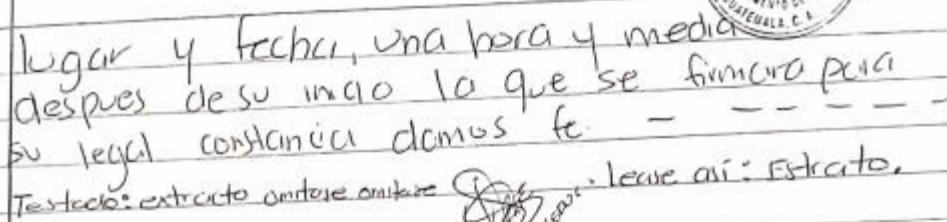 GUATEMALA, C. A.
lugar y fecha, una hora y media
despues de su inicio la que se firmara para
su legal constancia damos fe. - - - - - -
Testado: extracto omitase omitase lease así: Estrato.